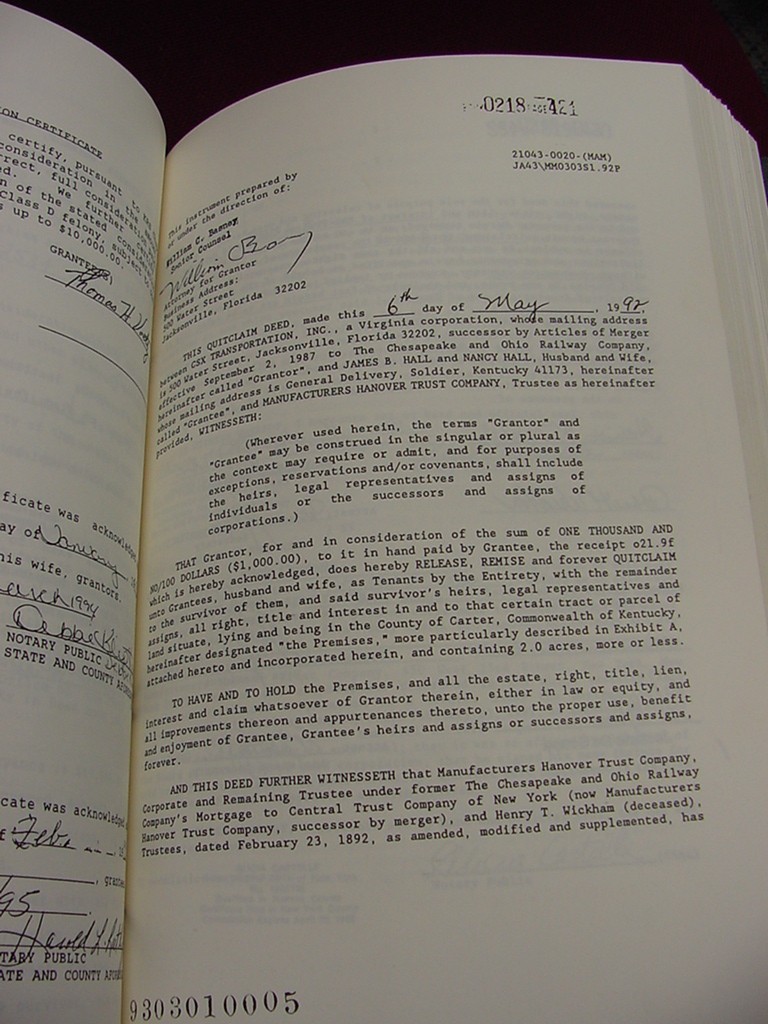 ON CERTIFICATE
certify, pursuant to
consideration in the
rrect, full consideration
ed. We further certify
n of the stated consideration
Class D felony, subject to
s up to $10,000.00.
GRANTER(S)
Thomas H.
ficate was acknowledged
ay of January
his wife, grantors.
March 1994
Debbie
NOTARY PUBLIC
STATE AND COUNTY AFOR
icate was acknowledged
f Feb.
, grantor
95
Harold L.
TARY PUBLIC
ATE AND COUNTY AFORE
0218 421
21043-0020-(MAM)
JA43\MM0303S1.92P
This instrument prepared by
or under the direction of:
William C. Basney
Senior Counsel
William C. Basney
Attorney for Grantor
Business Address:
500 Water Street
Jacksonville, Florida 32202
THIS QUITCLAIM DEED, made this 6th day of May, 1992,
between CSX TRANSPORTATION, INC., a Virginia corporation, whose mailing address
is 500 Water Street, Jacksonville, Florida 32202, successor by Articles of Merger
effective September 2, 1987 to The Chesapeake and Ohio Railway Company,
hereinafter called "Grantor", and JAMES B. HALL and NANCY HALL, Husband and Wife,
whose mailing address is General Delivery, Soldier, Kentucky 41173, hereinafter
called "Grantee", and MANUFACTURERS HANOVER TRUST COMPANY, Trustee as hereinafter
provided, WITNESSETH:
(Wherever used herein, the terms "Grantor" and
"Grantee" may be construed in the singular or plural as
the context may require or admit, and for purposes of
exceptions, reservations and/or covenants, shall include
the heirs, legal representatives and assigns of
individuals or the successors and assigns of
corporations.)
THAT Grantor, for and in consideration of the sum of ONE THOUSAND AND
NO/100 DOLLARS ($1,000.00), to it in hand paid by Grantee, the receipt o21.9f
which is hereby acknowledged, does hereby RELEASE, REMISE and forever QUITCLAIM
unto Grantees, husband and wife, as Tenants by the Entirety, with the remainder
to the survivor of them, and said survivor's heirs, legal representatives and
assigns, all right, title and interest in and to that certain tract or parcel of
land situate, lying and being in the County of Carter, Commonwealth of Kentucky,
hereinafter designated "the Premises," more particularly described in Exhibit A,
attached hereto and incorporated herein, and containing 2.0 acres, more or less.
TO HAVE AND TO HOLD the Premises, and all the estate, right, title, lien,
interest and claim whatsoever of Grantor therein, either in law or equity, and
all improvements thereon and appurtenances thereto, unto the proper use, benefit
and enjoyment of Grantee, Grantee's heirs and assigns or successors and assigns,
forever.
AND THIS DEED FURTHER WITNESSETH that Manufacturers Hanover Trust Company,
Corporate and Remaining Trustee under former The Chesapeake and Ohio Railway
Company's Mortgage to Central Trust Company of New York (now Manufacturers
Hanover Trust Company, successor by merger), and Henry T. Wickham (deceased),
Trustees, dated February 23, 1892, as amended, modified and supplemented, has
9303010005